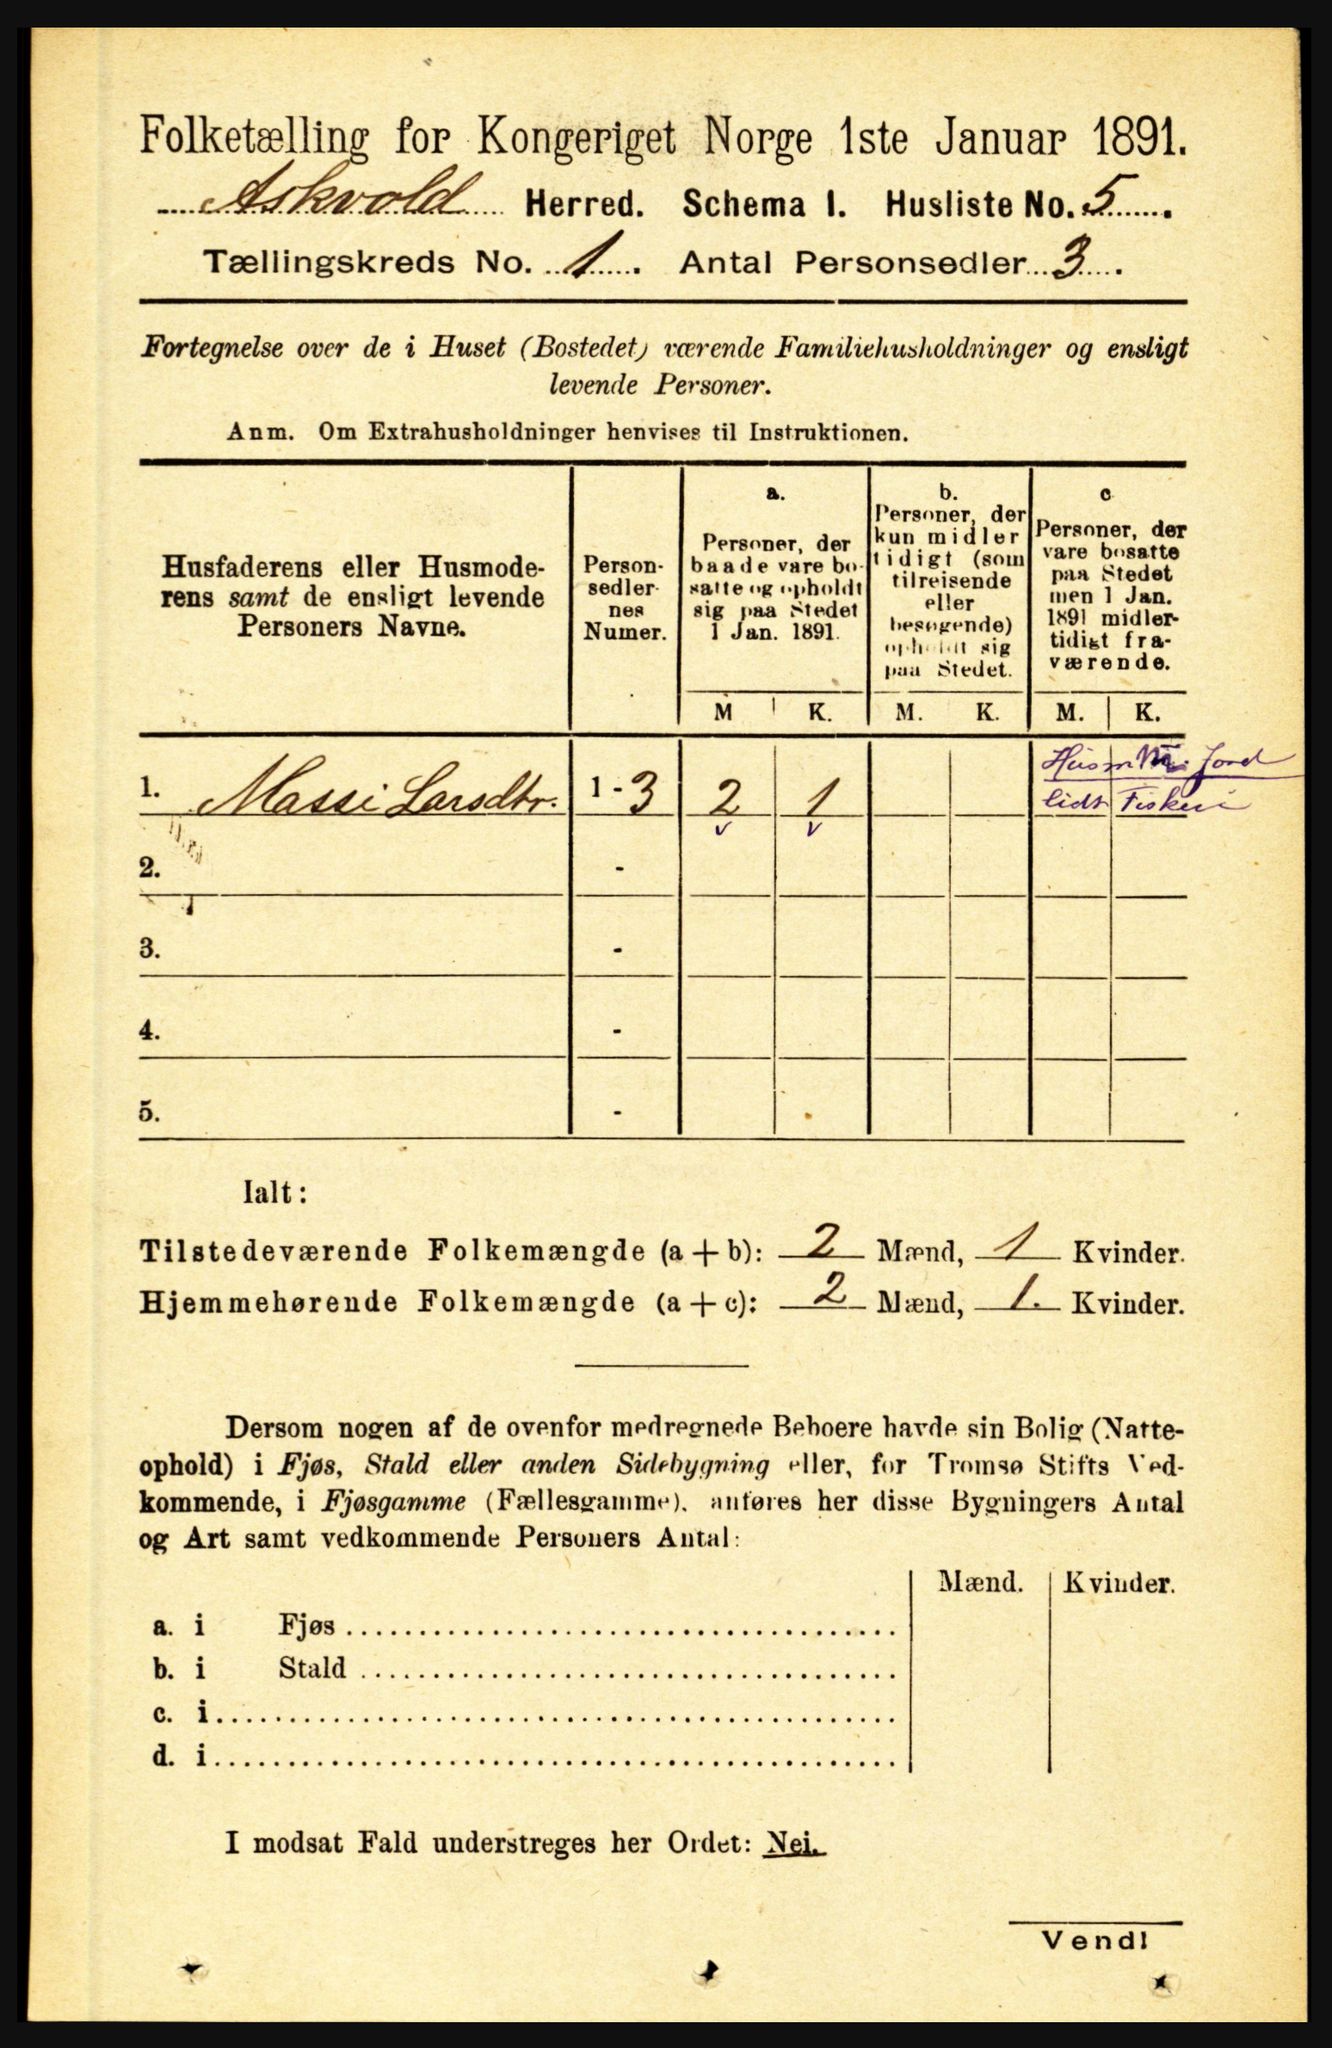 Folketælling for Kongeriget Norge 1ste Januar 1891.
Askvold Herred. Schema I. Husliste No. 5
Tællingskreds No. 1. Antal Personsedler 3.
Fortegnelse over de i Huset (Bostedet) værende Familiehusholdninger og ensligt
levende Personer.
Anm. Om Extrahusholdninger henvises til Instruktionen.
Husfaderens eller Husmode-
rens samt de ensligt levende
Personers Navne.
Person-
sedler-
nes
Numer.
a.
Personer, der
baade vare bo-
satte og opholdt
sig paa Stedet
1 Jan. 1891.
M K.
b.
Personer, der
kun midler
tidigt (som
tilreisende
eller
besøgende)
opholdt sig
paa Stedet.
M. K.
c
Personer, der
vare bosatte
paa Stedet
men 1 Jan.
1891 midler-
tidigt fra-
værende.
M. K.
Husm. M. Jord
1. Massi Larsdtr. 1 - 3 2 1 lidt Fiskeri
2. -
3. -
4. -
5. -
Ialt:
Tilstedeværende Folkemængde (a + b): 2 Mænd, 1 Kvinder.
Hjemmehørende Folkemængde (a + c): 2 Mænd, 1. Kvinder.
Dersom nogen af de ovenfor medregnede Beboere havde sin Bolig (Natte-
ophold) i Fjøs, Stald eller anden Sidebygning eller, for Tromsø Stifts Ved-
kommende, i Fjøsgamme (Fællesgamme), anføres her disse Bygningers Antal
og Art samt vedkommende Personers Antal:
Mænd. Kvinder.
a. i Fjøs
b. i Stald
c. i
d. i
I modsat Fald understreges her Ordet: Nei.
Vend!